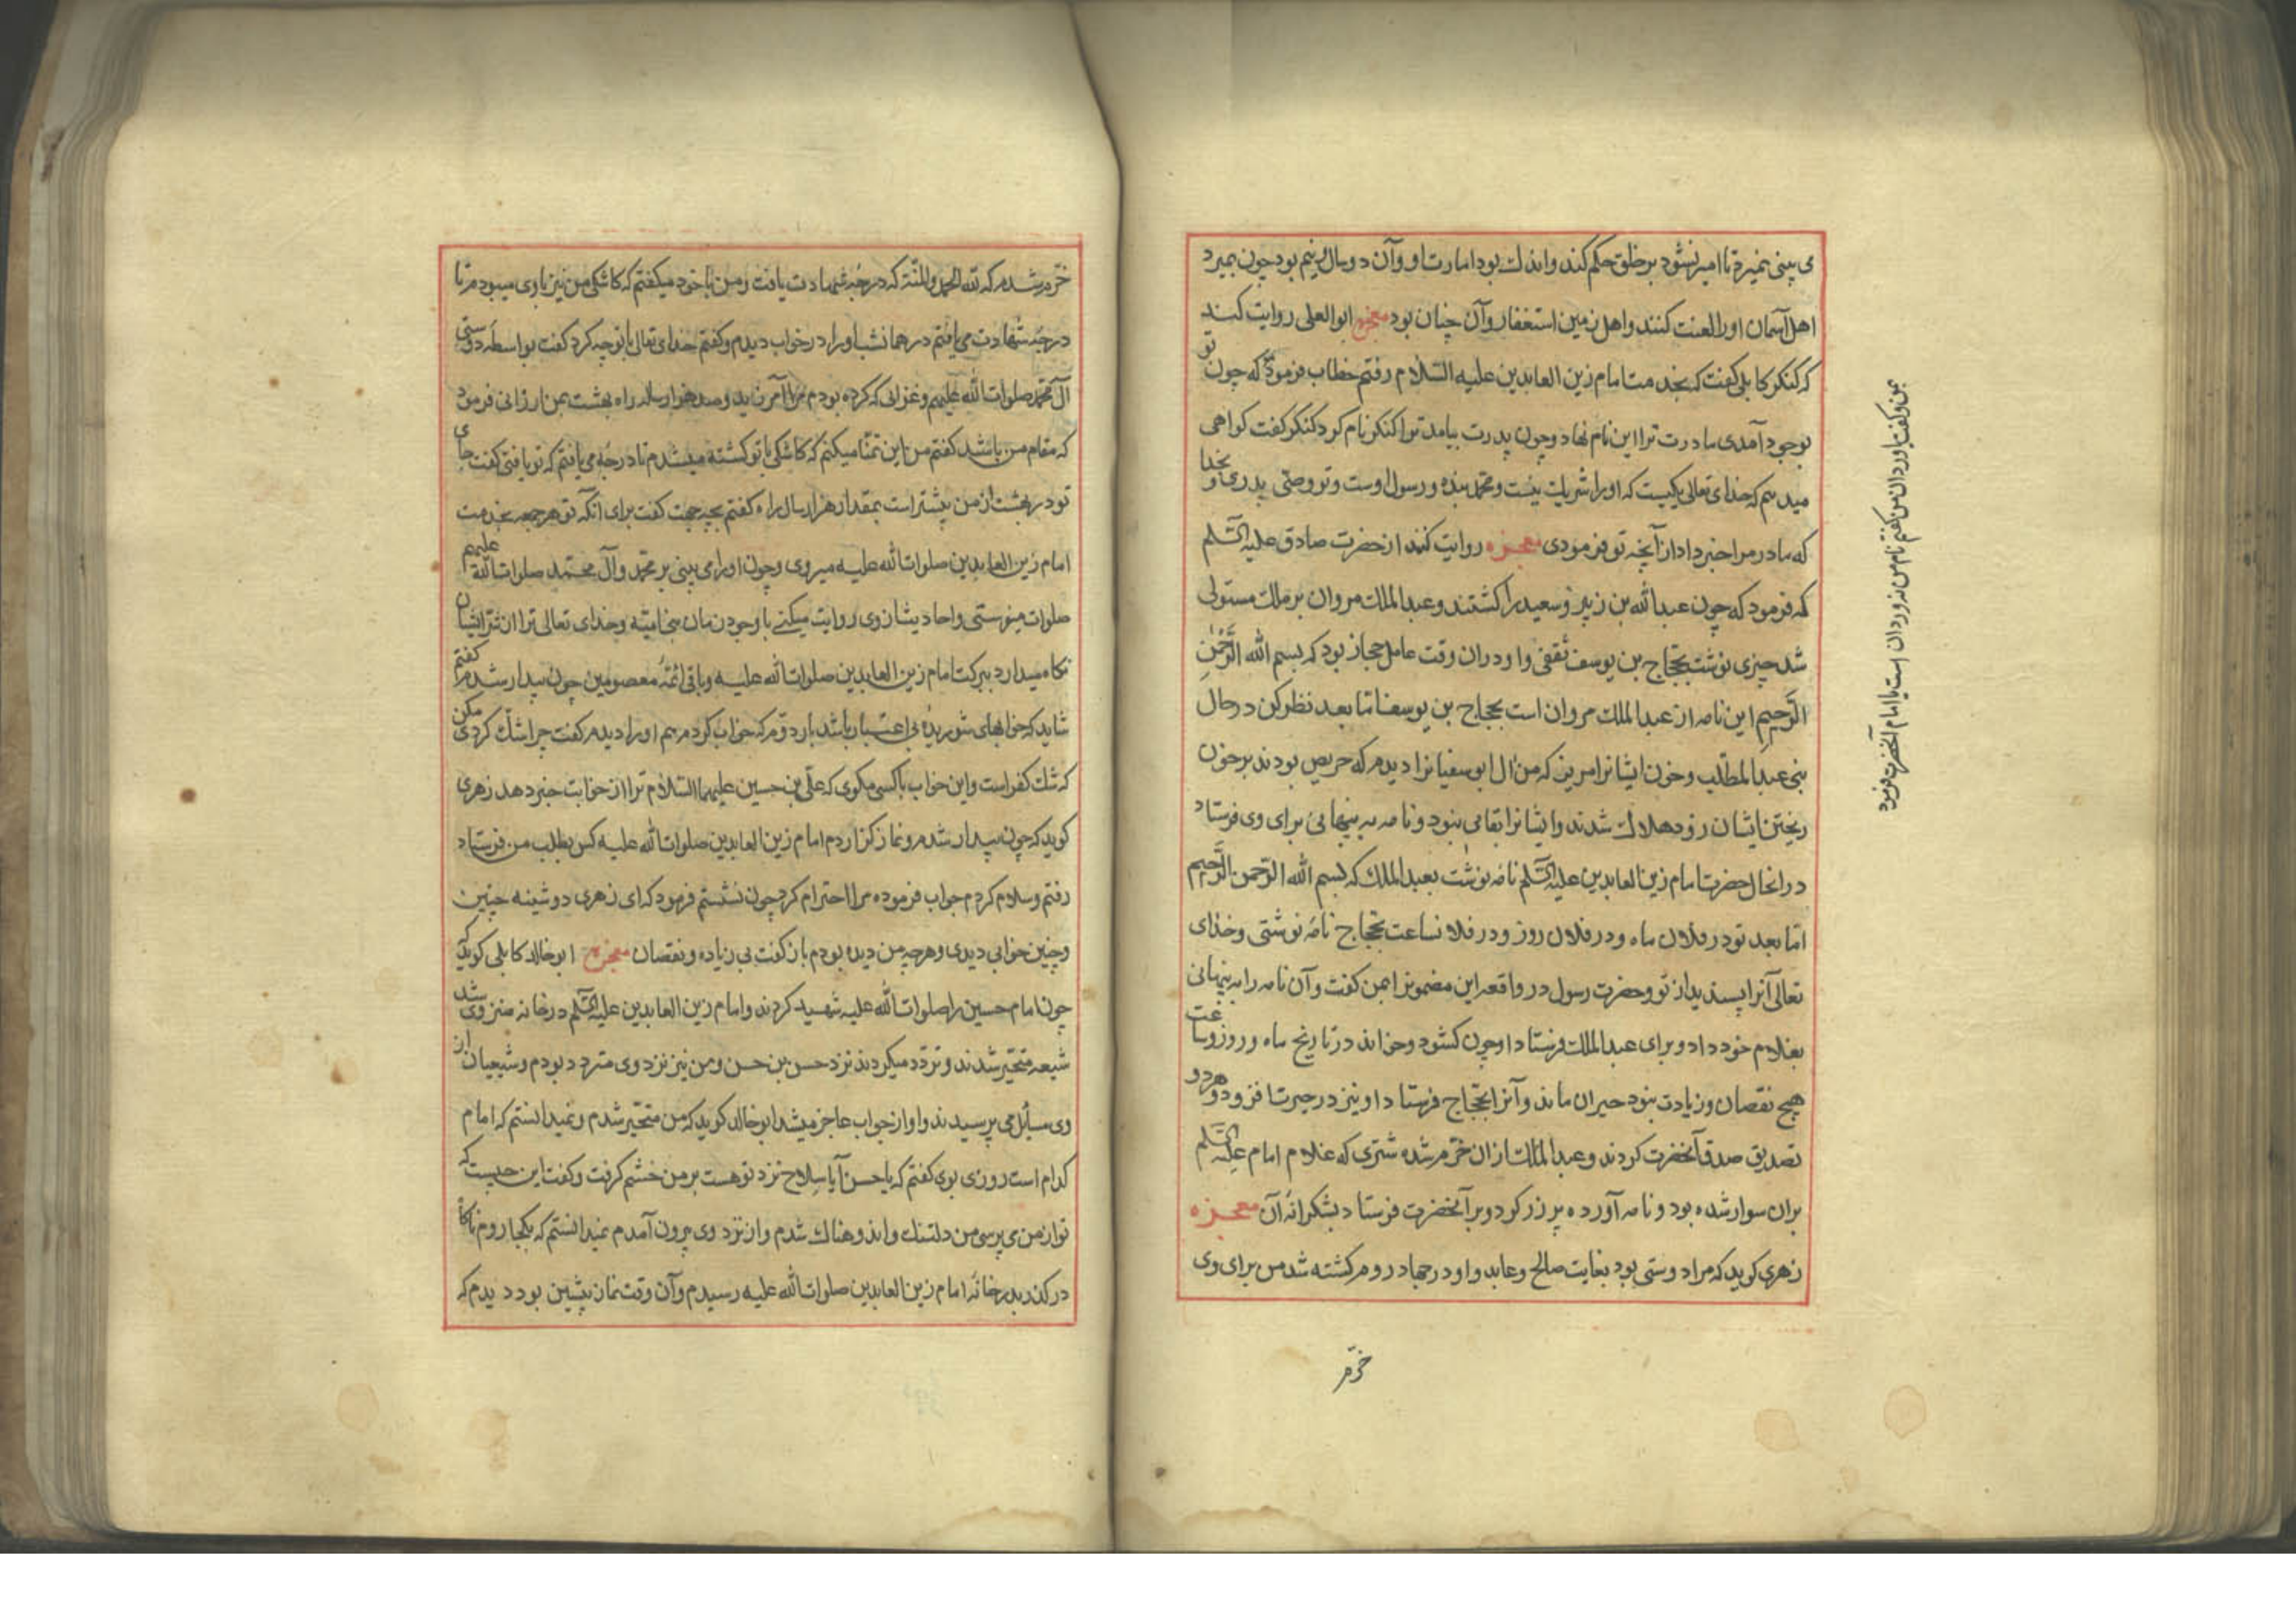 می بینی نمیرد تا امیر نشود بر خلق حکم کند و اندک بود امارت او و آن دو سال و نیم بود چون بمیرد
اهل آسمان او را لعنت کنند و اهل زمین استغفار و آن چنان بود معجزه ابو العلی روایت کند
که کنکر کابلی گفت که بخدمت امام زین العابدین علیه السلام رفتم خطاب فرمود که چون تو
بوجود آمدی مادرت ترا این نام نهاد و چون پدرت بیامد ترا کنکر نام کرد کنکر گفت گواهی
میدهم که خدای تعالی یکیست که او را شریک نیست و محمد بنده و رسول اوست و تو وصی پدری و بخدا
که مادر مرا خبر داد از آنچه تو فرمودی معجزه روایت کنند از حضرت صادق علیه السلم
که فرمود که چون عبد الله بن زبیر و سعید را کشتند و عبد الملک مروان بر ملک مستولی
شد چیزی نوشت بحجاج بن یوسف ثقفی و او دران وقت عامل حجاز بود که بسم الله الرَّحْمٰنِ
الرَّحیمِ این نامه از عبد الملک مروان است بحجاج بن یوسف اما بعد نظر کن در حال
بنی عبد المطلب و خون ایشانرا مریز که من آل ابو سفیانرا دیدم که حریص بودند بر خون
ریختن ایشان زود هلاک شدند و ایشانرا بقایی نبود و نامه به پنهانی برای وی فرستاد
درانحال حضرت امام زین العابدین علیه السلم نامه نوشت بعبد الملک که بسم الله الرحمن الرَّحیم
اما بعد تو در فلان ماه و در فلان روز و در فلان ساعت بحجاج نامه نوشتی و خدای
تعالی آنرا پسندید از تو و حضرت رسول در واقعه این مضمونرا بمن گفت و آن نامه را به پنهانی
بغلام خود داد و برای عبد الملک فرستاد او چون گشود و خواند در تاریخ ماه و روز و ساعت
هیچ نقصان و زیادت نبود حیران ماند و آنرا بحجاج فرستاد او نیز در حیرت افزود و هر دو
تصدیق صدق آنحضرت کردند و عبد الملک ازان خرّم شده شتری که غلام امام علیه السلم
بران سوار شده بود و نامه آورده پر زر کرد و برا آنحضرت فرستاد بشکرانه آن معجزه
زهری گوید که مرا دوستی بود بغایت صالح و عابد و او در جهاد روم کشته شد من برای وی
خرّم
بمن و گفت وردان من گفتم نام من نه وردان است یا امام آنحضرت فرمود
خرّم شدم که لله الحمد و المنّة که درجه شهادت یافت و من با خود میگفتم که کاشکی من نیز با وی میبودم تا
درجه شهادت می یافتم در همان شب او را در خواب دیدم و گفتم خدای تعالی با تو چه کرد گفت بواسطه دوستی
آل محمد صلوات الله علیهم و غزائی که کرده بودم مرا آمرزید و صد هزار ساله راه بهشت بمن ارزانی فرمود
که مقام من باشد گفتم من این تمنا میکنم که کاشکی با تو کشته میشدم تا درجه می یافتم که تو یافتی گفت جای
تو در بهشت از من بیشتر است بمقدار هزار سال راه گفتم بچه جهت گفت برای آنکه تو هر جمعه بخدمت
امام زین العابدین صلوات الله علیه میروی و چون او را می بینی بر محمد و آل محمد صلوات الله علیهم
صلوات میفرستی و احادیث از وی روایت میکنی با وجود زمان بنی امیّه و خدای تعالی ترا از شر ایشان
نگاه میدارد ببرکت امام زین العابدین صلوات الله علیه و باقی ائمهٔ معصومین چون بیدار شدم گفتم
شاید که خوابهای شوریده بی اعتبار باشد بار دوم که خواب کردم هم او را دیدم گفت چرا شک کردی مکن
که شک کفر است و این خواب با کسی مگوی که علی بن حسین علیهما السلام ترا از خوابت خبر دهد زهری
گوید که چون بیدار شدم و نماز گزاردم امام زین العابدین صلوات الله علیه کس بطلب من فرستاد
رفتم و سلام کردم جواب فرموده مرا احترام کرد چون نشستم فرمود که ای زهری دوشینه چنین
و چنین خوابی دیدی و هرچه من دیده بودم باز گفت بی زیاده و نقصان معجزه ابو خالد کابلی گوید که
چون امام حسین را صلوات الله علیه شهید کردند و امام زین العابدین علیه السلم در خانه منزوی شد
شیعه متحیّر شدند و تردد میکردند نزد حسن بن حسن و من نیز نزد وی متردد بودم و شیعیان از
وی مسایل می پرسیدند و او از جواب عاجز میشد ابو خالد گوید که من متحیّر شدم و نمیدانستم که امام
کدام است روزی بوی گفتم که یا حسن آیا سلاح نزد تو هست بر من خشم گرفت و گفت این چیست که
تو از من می پرسی من دلتنک و اندوهناک شدم و از نزد وی بیرون آمدم نمیدانستم که بکجا روم ناگاه
در گذر بدر خانه امام زین العابدین صلوات الله علیه رسیدم و آن وقت نماز پیشین بود دیدم که